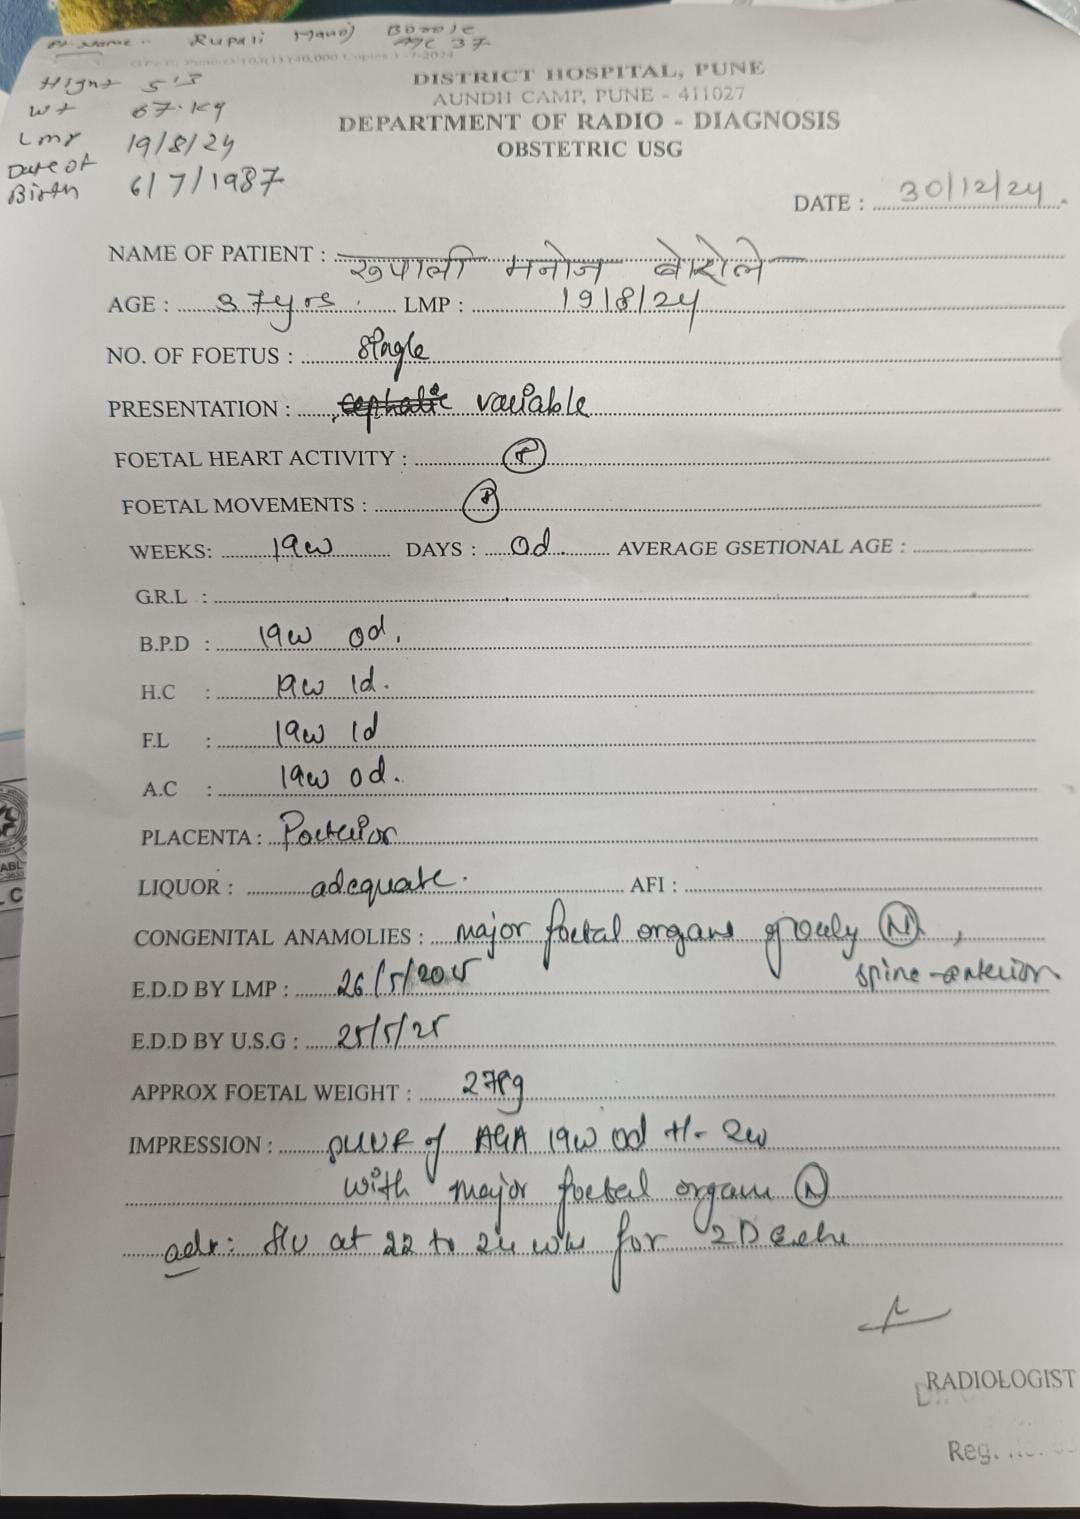 Pt. Name :- Rupali Manoj Borole
Age 37
Hight 5'3
Wt 67.kg
Lmp 19/8/24
Date of
Birth 6/7/1987
DISTRICT HOSPITAL, PUNE
AUNDH CAMP, PUNE - 411027
DEPARTMENT OF RADIO - DIAGNOSIS
OBSTETRIC USG
DATE : 30/12/24
NAME OF PATIENT : रुपाली मनोज बोरोले
AGE : 37yrs LMP : 19/8/24
NO. OF FOETUS : Single
PRESENTATION : cephalic variable
FOETAL HEART ACTIVITY : P
FOETAL MOVEMENTS : P
WEEKS: 19w DAYS : 0d. AVERAGE GSETIONAL AGE :
G.R.L :
B.P.D : 19w 0d.
H.C : 19w 1d.
F.L : 19w 1d
A.C : 19w 0d.
PLACENTA : Posterior
LIQUOR : adequate. AFI :
CONGENITAL ANAMOLIES : major foetal organs grossly N,
spine - anterior
E.D.D BY LMP : 26/5/2025
E.D.D BY U.S.G : 25/5/25
APPROX FOETAL WEIGHT : 278g
IMPRESSION : of AGA 19w 0d +/- 2w
with major foetal organs N
adv: f/u at 22 to 24 wk for 2D Echo
RADIOLOGIST
Reg.